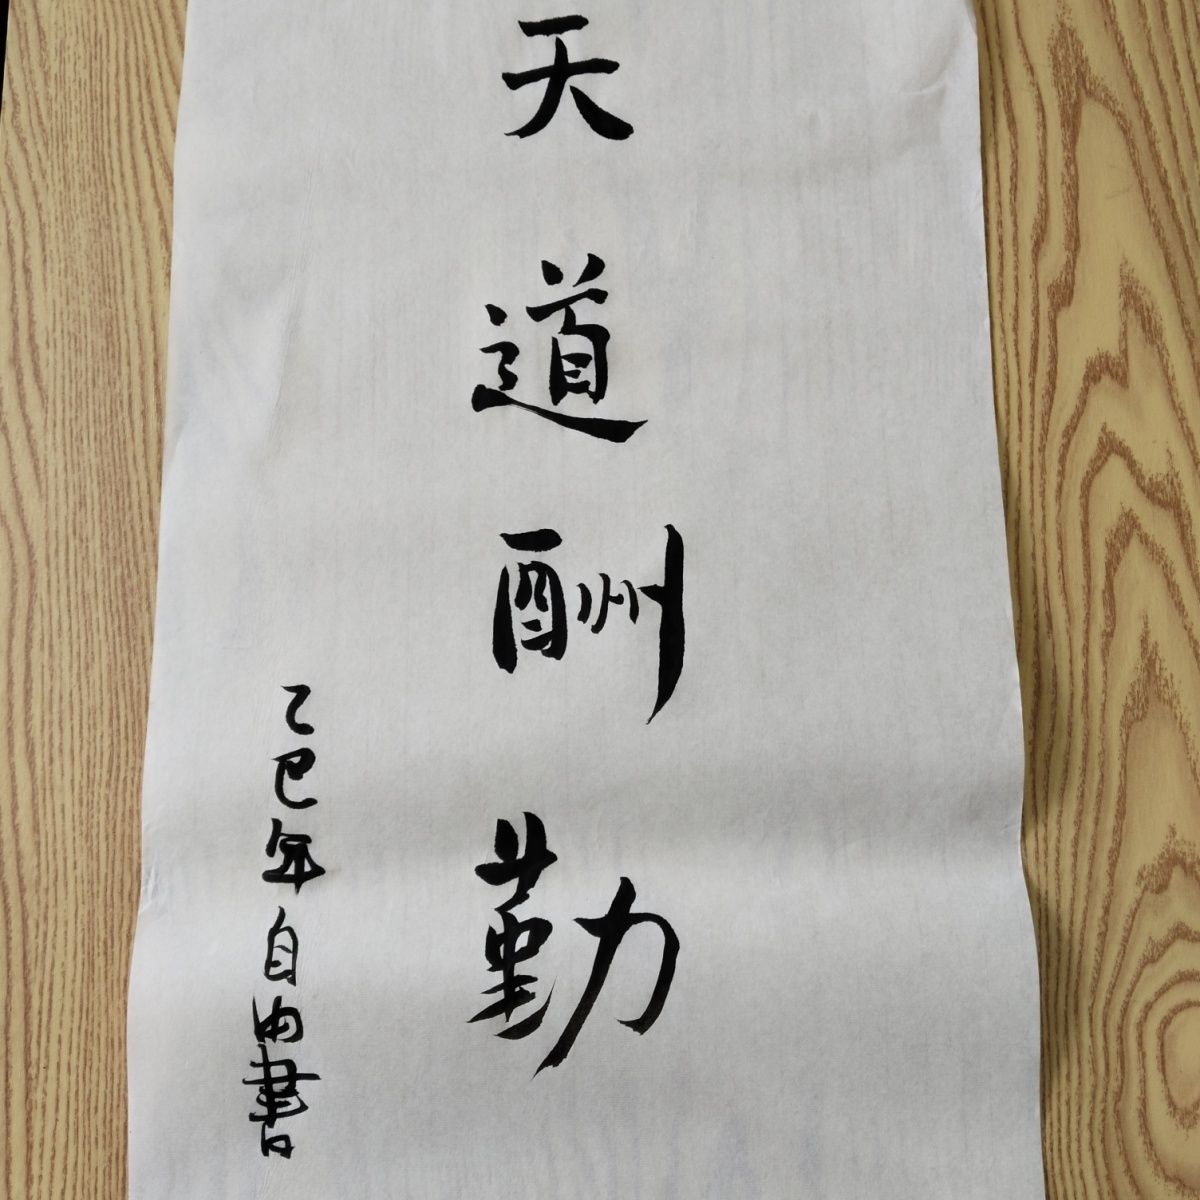 天道酬勤
乙巳年自由書